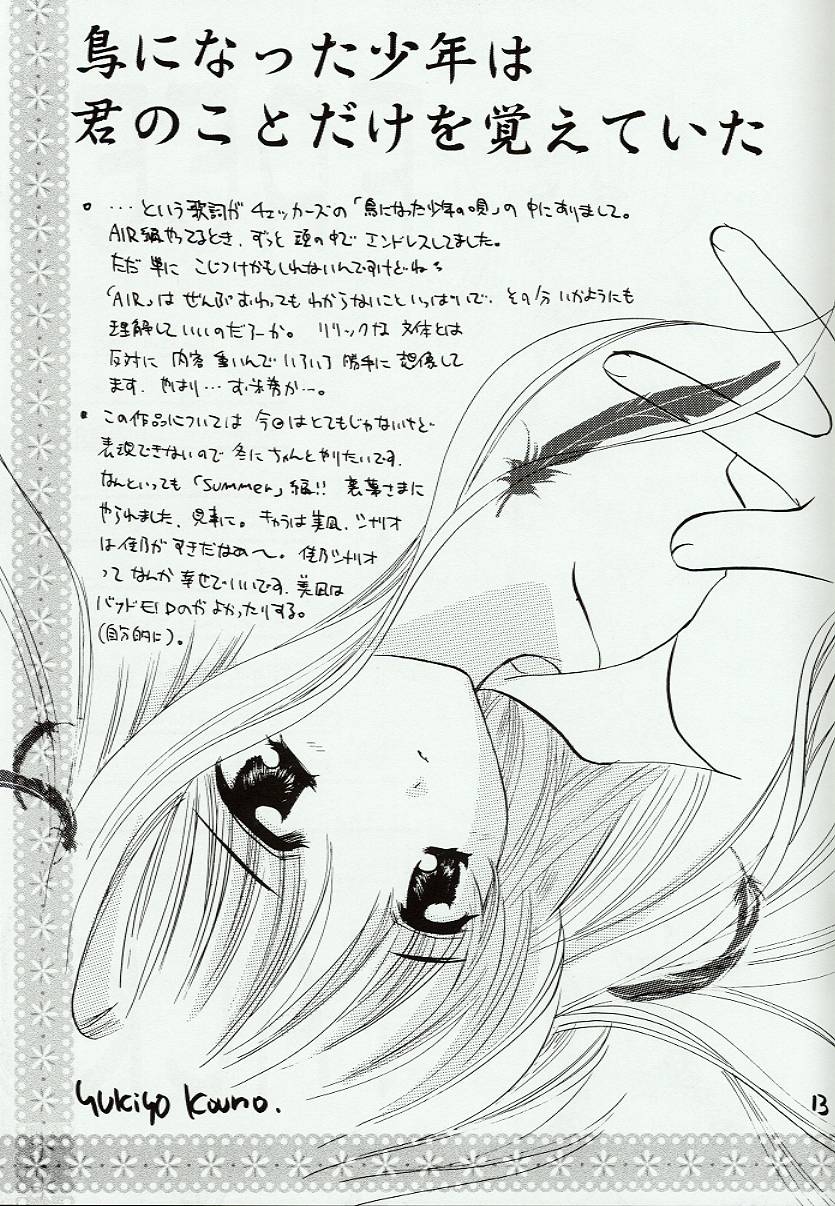 鳥になった少年は
君のことだけを覚えていた
・…という歌詞がチェッカーズの「鳥になった少年の唄」の中にありまして。
AIR編やってるとき、ずっと頭の中でエンドレスしてました。
ただ単にこじつけかもしれないんですけどね
「AIR」はぜんぶおわってもわからないこといっぱいで、その分いかようにも
理解していいのだろーか。リリックな文体とは
反対に内容重いんでいろいろ勝手に想像して
ます。やはり…すごい
・この作品については今回はとてもじゃないけど
表現できないので冬にちゃんとやりたいです。
なんといっても「Summer」編!!裏葉さまに
やられました、見事に。キャラは美凪、シナリオ
は佳乃がすきだなあ〜。佳乃シナリオ
ってなんか幸せでいいです。美凪は
バッドENDのがよかったりする。
(自分的に)。
Yukiyo Kouno.
13